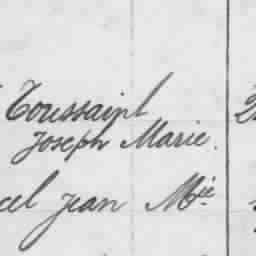 Toussaint
Joseph Marie.
cel Jean Mie